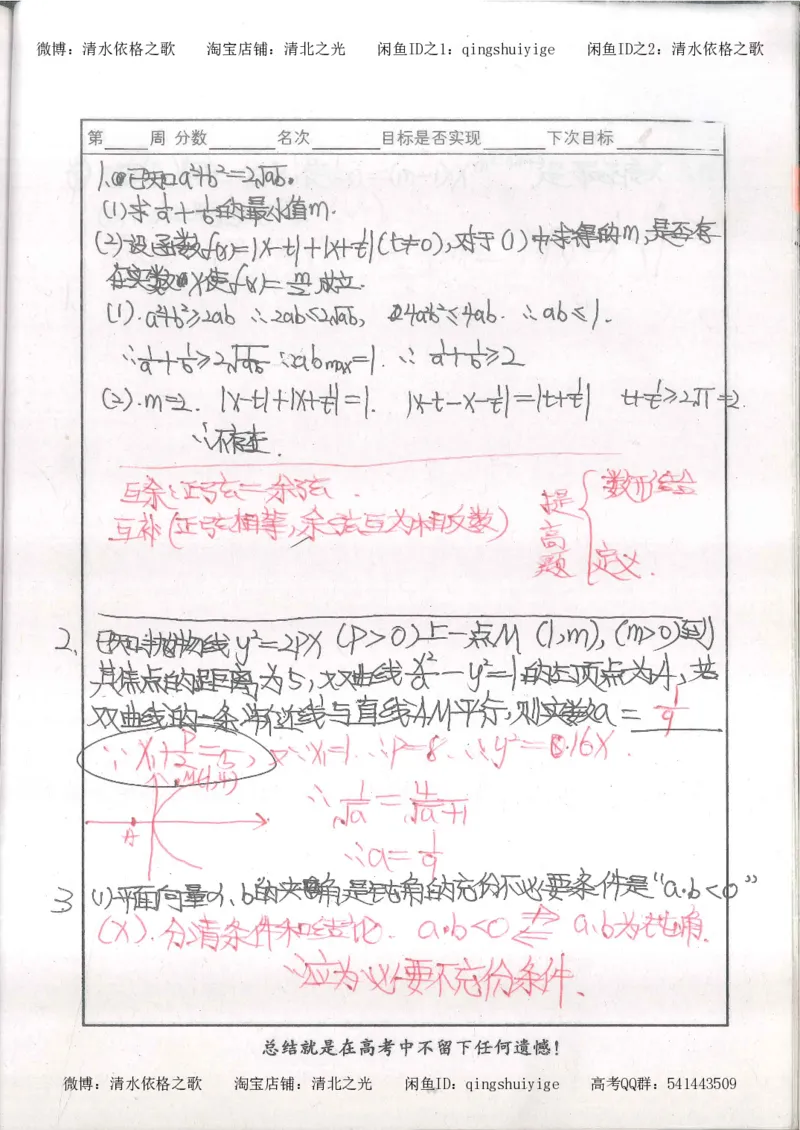 微博：清水依格之歌 淘宝店铺：清北之光 闲鱼ID之1：qingshuiyige 闲鱼ID之2：清水依格之歌
第 周 分数 名次 目标是否实现 下次目标
1.已知a²+b²=2√ab.
(1)求1/a+1/b的最小值m.
(2)设函数f(x)=|x-t|+|x+1/t|(t≠0),对于(1)中求得的m,是否存
在实数x使f(x)=m/2成立.
(1).a²+b²≥2ab ∴2ab≤2√ab, 4a²b²≤4ab. ∴ab≤1.
∴1/a+1/b≥2√1/ab ∵abmax=1. ∴1/a+1/b≥2
(2).m=2. |x-t|+|x+1/t|=1. |x-t-x-1/t|=|t+1/t| t+1/t≥2√1=2.
∴不存在.
互余：正弦=余弦.
互补(正弦相等,余弦互为相反数)
提高题 { 数形结合
定义.
2、已知抛物线y²=2px(p>0)上一点M(1,m),(m>0)到
其焦点的距离为5,双曲线x²/a-y²=1的左顶点为A,若
双曲线的一条渐近线与直线AM平行,则实数a=1/9
∵x₁+p/2=5,又∵x₁=1.∴p=8.∴y²=16x.
M(1,4)
A
∴1/√a=4/√a+1
∴a=1/9
3 (1)平面向量a、b的夹角是钝角的充份不必要条件是“a·b<0”
(×).分清条件和结论. a·b<0⇏⇐a.b为钝角.
∴应为必要不充份条件、
总结就是在高考中不留下任何遗憾！
微博：清水依格之歌 淘宝店铺：清北之光 闲鱼ID：qingshuiyige 高考QQ群：541443509